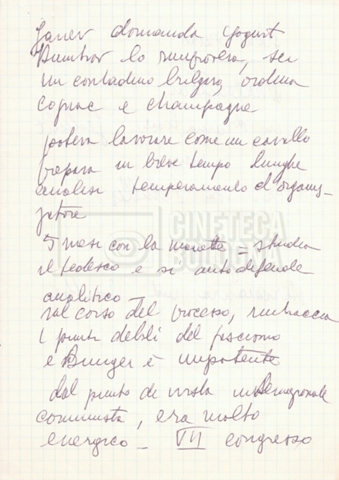 Janev domanda yogurt
Dimitrov lo rimprovera, sei
un contadino bulgaro, ordina
cognac e champagne
poteva lavorare come un cavallo
prepara in breve tempo lunghe
analisi temperamento d'organiz-
zatore
5 mesi con le manette = studia
il tedesco e si autodifende
analitico —
sul corso del processo, rintraccia
i punti deboli del fascismo
e Bunger è impotente
dal punto di vista internazionale
comunista, era molto
energico — VII congresso
CINETECA
BOLOGNA